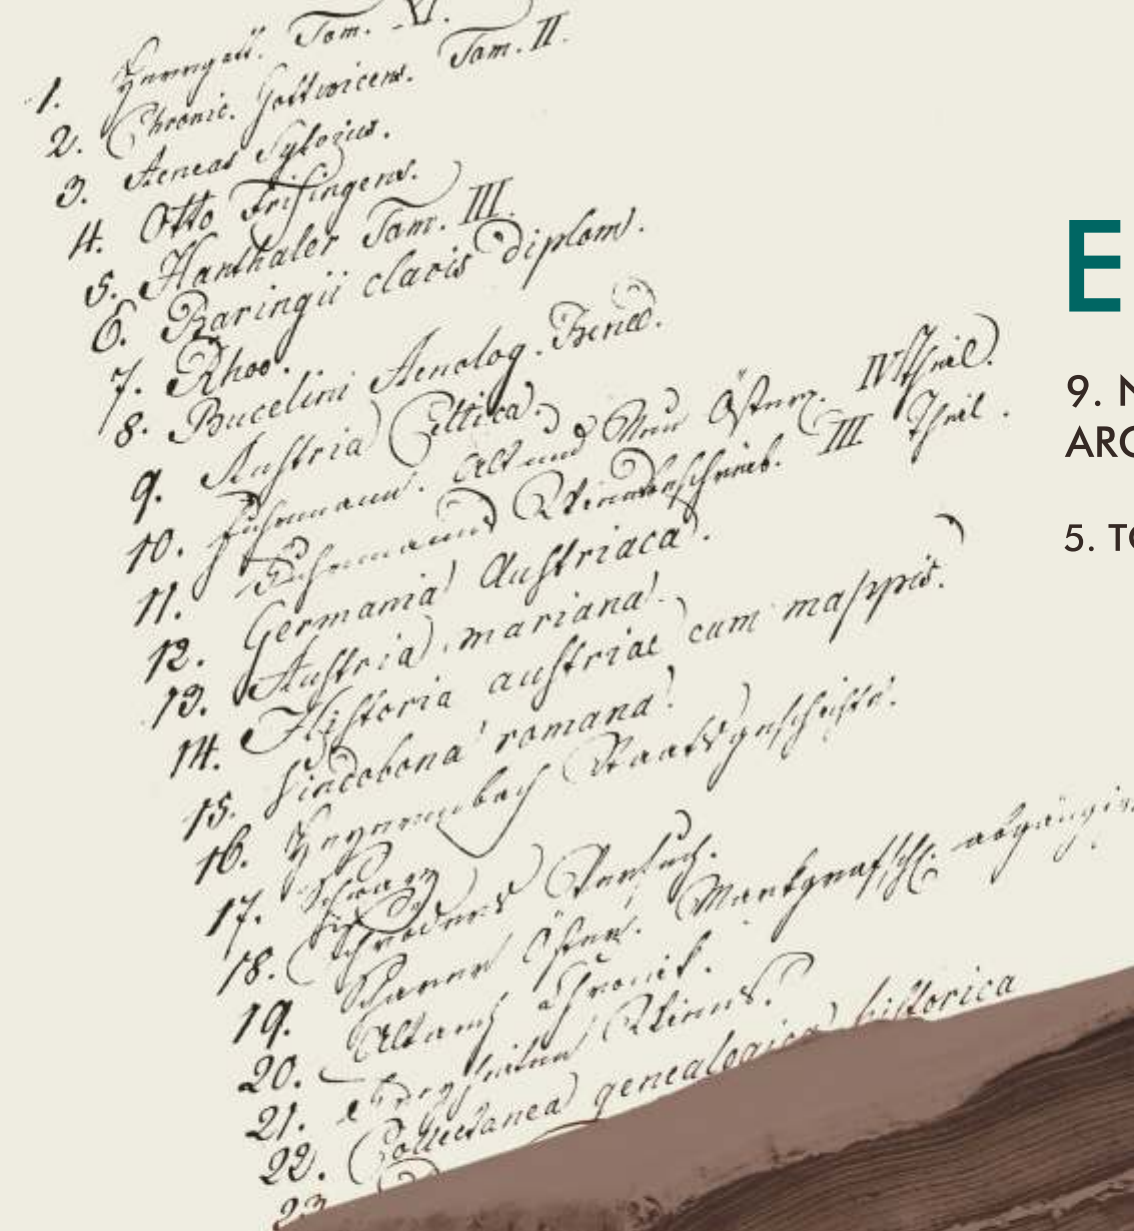 1. Tom. VI.
2. Chronic. Gottwicens. Tom. II.
3. Aeneas Sylvius.
4. Otto Frisingens.
5. Hanthaler Tom. III.
6. Baringii clavis diplom.
7. Rhoo.
8. Bucelini Menolog. Bened.
9. Austria Celtica.
10. Fuhrmann. Alt und Neu Österr. IV Theil.
11. Fuhrmann Wienbeschreib. III Theil.
12. Germania Austriaca.
13. Austria mariana.
14. Historia austriae cum mappis.
15. Vindobona romana.
16. Staatsgeschichte.
17.
18. Schröders Versuch.
19. Österr. Markgrafschl.
20. Chronik.
21. Wiens.
22. Collectanea genealogica historica
23.
E
9. N
ARC
5. TO